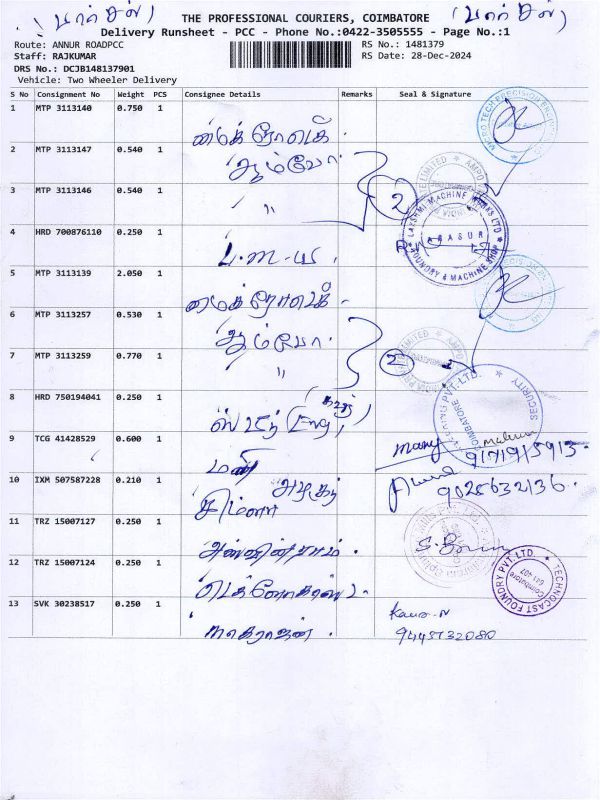 (பார்சல்) THE PROFESSIONAL COURIERS, COIMBATORE (பார்சல்)
Delivery Runsheet - PCC - Phone No.:0422-3505555 - Page No.:1
Route: ANNUR ROADPCC RS No.: 1481379
Staff: RAJKUMAR RS Date: 28-Dec-2024
DRS No.: DCJB148137901
Vehicle: Two Wheeler Delivery
S No Consignment No Weight PCS Consignee Details Remarks Seal & Signature
1 MTP 3113140 0.750 1
மைக்ரோடெக்
2 MTP 3113147 0.540 1
ஆம்போ
3 MTP 3113146 0.540 1 2
"
4 HRD 700876110 0.250 1
L.M.W.
5 MTP 3113139 2.050 1
மைக்ரோடெக்
6 MTP 3113257 0.530 1
ஆம்போ
7 MTP 3113259 0.770 1 2
"
8 HRD 750194041 0.250 1
ஸ்டீல் (Eng)
9 TCG 41428529 0.600 1
மணி many
10 IXM 507587228 0.210 1
9025632136
11 TRZ 15007127 0.250 1
12 TRZ 15007124 0.250 1
13 SVK 30238517 0.250 1
நாகராஜன்
9445732080
MICRO TECH PRECISION
LAKSHMI MACHINE WORKS LTD
ARASUR
FOUNDRY & MACHINE SHOP
COIMBATORE PVT. LTD.
SECURITY
TECHNOCAST FOUNDRY PVT. LTD.
Coimbatore
641 407